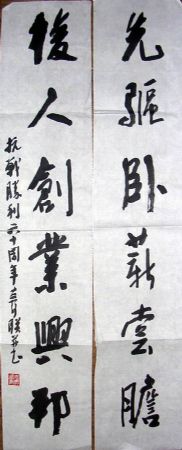 先驱卧薪尝胆
後人創業興邦
抗戰勝利六十周年